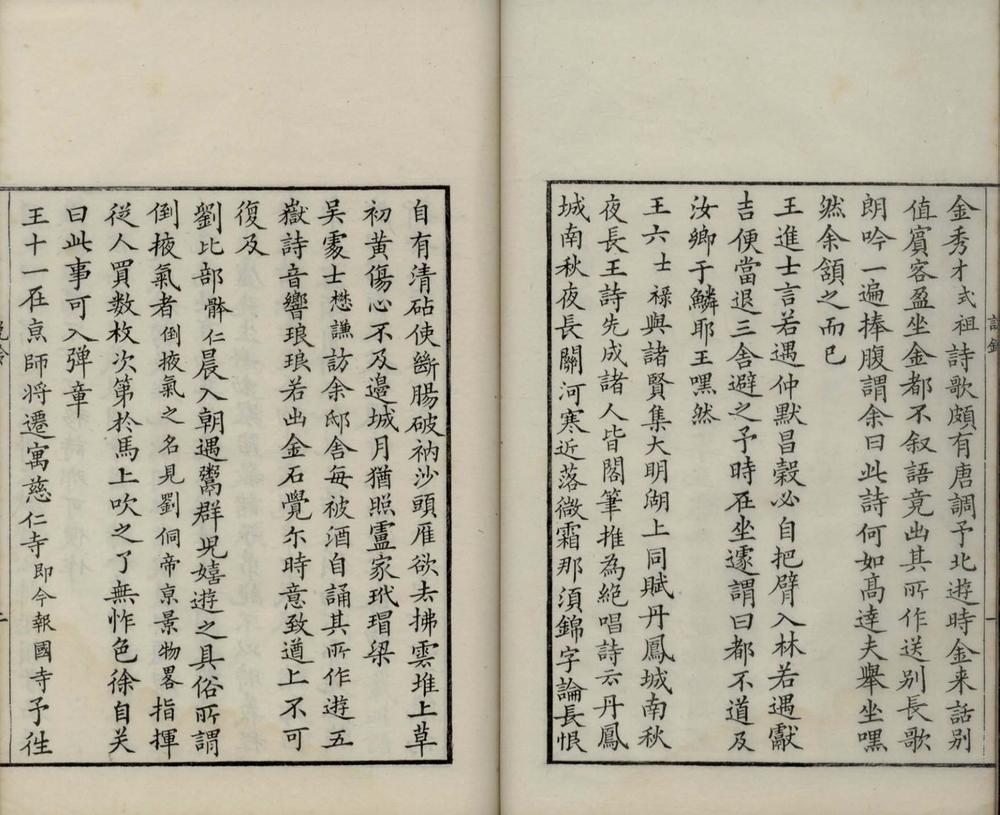 金秀才式祖詩歌頗有唐調予北遊時金来話别
值賓客盈坐金都不叙語竟出其所作送别長歌
朗吟一遍捧腹謂余曰此詩何如髙達夫舉坐嘿
然余頷之而已
王進士言若遇仲默昌榖必自把臂入林若遇獻
吉便當退三舍避之予時在坐遽謂曰都不道及
汝鄉于鱗耶王嘿然
王六士禄與諸賢集大明湖上同賦丹鳳城南秋
夜長王詩先成諸人皆閣筆推為絶唱詩云丹鳳
城南秋夜長關河寒近落微霜那須錦字論長恨
自有清砧使斷腸破衲沙頭雁欲去拂雲堆上草
初黄傷心不及邉城月猶照盧家玳瑁梁
吳處士懋謙訪余邸舎每被酒自誦其所作遊五
嶽詩音響琅琅若出金石覺尓時意致遒上不可
復及
劉比部體仁晨入朝遇鬻群児嬉遊之具俗所謂
倒掖氣者倒掖氣之名見劉侗帝京景物畧指揮
従人買數枚次第於馬上吹之了無怍色徐自笑
曰此事可入弹章
王十一在京師将遷寓慈仁寺即今報國寺予徃